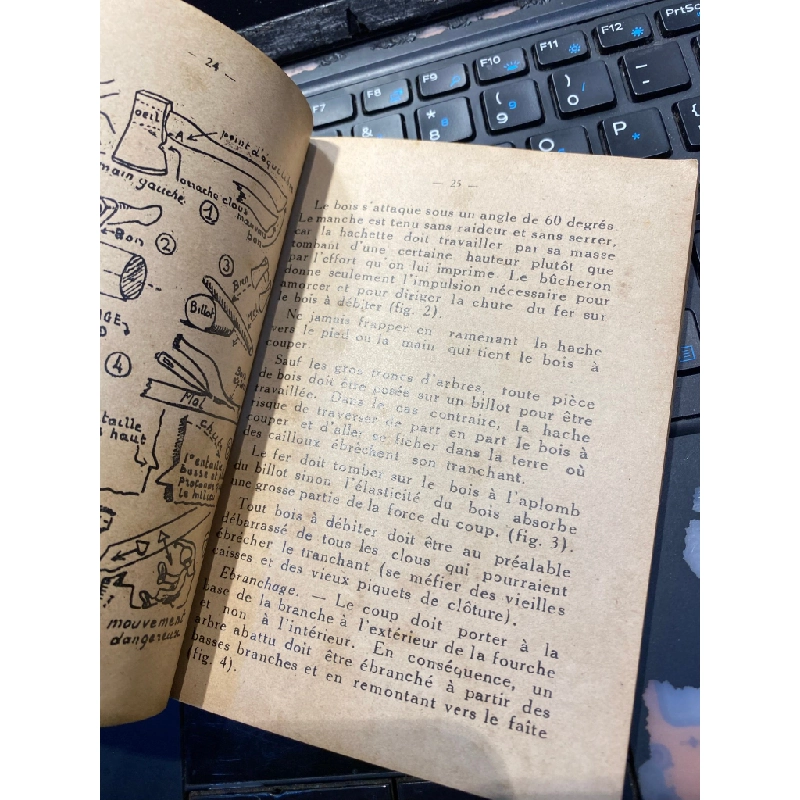 — 24 —
oeil
A
point d'équilibre
main gauche.
arrache clous
mauvais
bon
1
Bon
2
3
Bon
Billot
4
Mal
entaille
haut
chute
l'entaille
basse et
le milieu
mouvement
dangereux
— 25 —
Le bois s'attaque sous un angle de 60 degrés.
Le manche est tenu sans raideur et sans serrer,
car la hachette doit travailler par sa masse
tombant d'une certaine hauteur plutôt que
par l'effort qu'on lui imprime. Le bûcheron
donne seulement l'impulsion nécessaire pour
amorcer et pour diriger la chute du fer sur
le bois à débiter (fig. 2).
Ne jamais frapper en ramenant la hache
vers le pied ou la main qui tient le bois à
couper
Sauf les gros troncs d'arbres, toute pièce
de bois doit être posés sur un billot pour être
travaillée. Dans le cas contraire, la hache
risque de traverser de part en part le bois à
couper et d'aller se ficher dans la terre où
des cailloux ébrèchent son tranchant.
Le fer doit tomber sur le bois à l'aplomb
du billot sinon l'élasticité du bois absorbe
une grosse partie de la force du coup. (fig. 3).
Tout bois à débiter doit être au préalable
débarrassé de tous les clous qui pourraient
ébrécher le tranchant (se méfier des vieilles
caisses et des vieux piquets de clôture).
Ebranchage. — Le coup doit porter à la
base de la branche à l'extérieur de la fourche
et non à l'intérieur. En conséquence, un
arbre abattu doit être ébranché à partir des
basses branches et en remontant vers le faîte
(fig. 4).
F7
F8
F9
F10
F11
F12
PrtSc
&
*
8
8
(
9
9
)
0
/
_
-
P
*
{
[